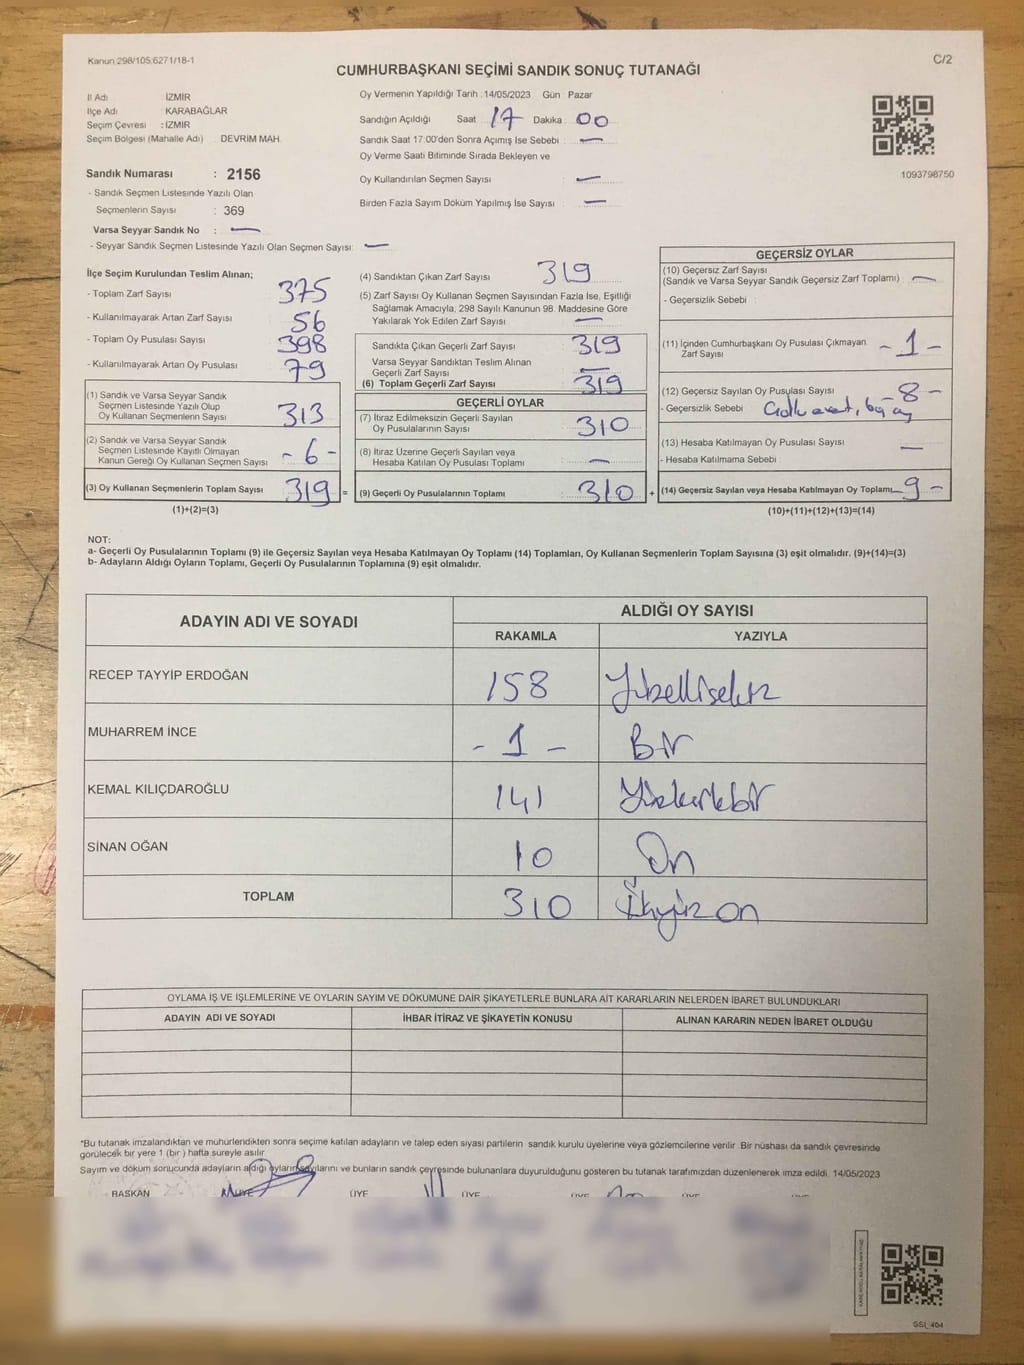 Kanun 298/105.6271/18-1
C/2
CUMHURBAŞKANI SEÇİMİ SANDIK SONUÇ TUTANAĞI
İl Adı İZMİR
İlçe Adı KARABAĞLAR
Seçim Çevresi : İZMİR
Seçim Bölgesi (Mahalle Adı) DEVRİM MAH.
Sandık Numarası : 2156
- Sandık Seçmen Listesinde Yazılı Olan
Seçmenlerin Sayısı : 369
Varsa Seyyar Sandık No : —
- Seyyar Sandık Seçmen Listesinde Yazılı Olan Seçmen Sayısı: —
Oy Vermenin Yapıldığı Tarih :14/05/2023 Gün : Pazar
Sandığın Açıldığı Saat 17 Dakika 00
Sandık Saat 17:00'den Sonra Açımış İse Sebebi : —
Oy Verme Saati Bitiminde Sırada Bekleyen ve
Oy Kullandırılan Seçmen Sayısı : —
Birden Fazla Sayım Döküm Yapılmış İse Sayısı : —
1093798750
İlçe Seçim Kurulundan Teslim Alınan;
- Toplam Zarf Sayısı 375
- Kullanılmayarak Artan Zarf Sayısı 56
- Toplam Oy Pusulası Sayısı 398
- Kullanılmayarak Artan Oy Pusulası 79
(1) Sandık ve Varsa Seyyar Sandık
Seçmen Listesinde Yazılı Olup
Oy Kullanan Seçmenlerin Sayısı 313
(2) Sandık ve Varsa Seyyar Sandık
Seçmen Listesinde Kayıtlı Olmayan
Kanun Gereği Oy Kullanan Seçmen Sayısı - 6 -
(3) Oy Kullanan Seçmenlerin Toplam Sayısı 319 =
(1)+(2)=(3)
(4) Sandıktan Çıkan Zarf Sayısı 319
(5) Zarf Sayısı Oy Kullanan Seçmen Sayısından Fazla İse, Eşitliği
Sağlamak Amacıyla, 298 Sayılı Kanunun 98. Maddesine Göre
Yakılarak Yok Edilen Zarf Sayısı : —
Sandıkta Çıkan Geçerli Zarf Sayısı 319
Varsa Seyyar Sandıktan Teslim Alınan
Geçerli Zarf Sayısı —
(6) Toplam Geçerli Zarf Sayısı 319
GEÇERLİ OYLAR
(7) İtiraz Edilmeksizin Geçerli Sayılan
Oy Pusulalarının Sayısı 310
(8) İtiraz Üzerine Geçerli Sayılan veya
Hesaba Katılan Oy Pusulası Toplamı —
(9) Geçerli Oy Pusulalarının Toplamı 310 +
GEÇERSİZ OYLAR
(10) Geçersiz Zarf Sayısı
(Sandık ve Varsa Seyyar Sandık Geçersiz Zarf Toplamı) —
- Geçersizlik Sebebi :
(11) İçinden Cumhurbaşkanı Oy Pusulası Çıkmayan
Zarf Sayısı - 1 -
(12) Geçersiz Sayılan Oy Pusulası Sayısı - 8 -
- Geçersizlik Sebebi
(13) Hesaba Katılmayan Oy Pusulası Sayısı —
- Hesaba Katılmama Sebebi :
(14) Geçersiz Sayılan veya Hesaba Katılmayan Oy Toplamı - 9 -
(10)+(11)+(12)+(13)=(14)
NOT:
a- Geçerli Oy Pusulalarının Toplamı (9) ile Geçersiz Sayılan veya Hesaba Katılmayan Oy Toplamı (14) Toplamları, Oy Kullanan Seçmenlerin Toplam Sayısına (3) eşit olmalıdır. (9)+(14)=(3)
b- Adayların Aldığı Oyların Toplamı, Geçerli Oy Pusulalarının Toplamına (9) eşit olmalıdır.
ADAYIN ADI VE SOYADI
ALDIĞI OY SAYISI
RAKAMLA YAZIYLA
RECEP TAYYİP ERDOĞAN 158 Yüzellisekiz
MUHARREM İNCE - 1 - Bir
KEMAL KILIÇDAROĞLU 141 Yüzkırkbir
SİNAN OĞAN 10 On
TOPLAM 310
OYLAMA İŞ VE İŞLEMLERİNE VE OYLARIN SAYIM VE DÖKÜMÜNE DAİR ŞİKAYETLERLE BUNLARA AİT KARARLARIN NELERDEN İBARET BULUNDUKLARI
ADAYIN ADI VE SOYADI İHBAR İTİRAZ VE ŞİKAYETİN KONUSU ALINAN KARARIN NEDEN İBARET OLDUĞU
*Bu tutanak imzalandıktan ve mühürlendikten sonra seçime katılan adayların ve talep eden siyasi partilerin sandık kurulu üyelerine veya gözlemcilerine verilir. Bir nüshası da sandık çevresinde
görülecek bir yere 1 (bir) hafta süreyle asılır.
Sayım ve döküm sonucunda adayların aldığı oyların sayılarını ve bunların sandık çevresinde bulunanlara duyurulduğunu gösteren bu tutanak tarafımızdan düzenlenerek imza edildi. 14/05/2023
BAŞKAN ÜYE ÜYE ÜYE ÜYE ÜYE
GSI_404